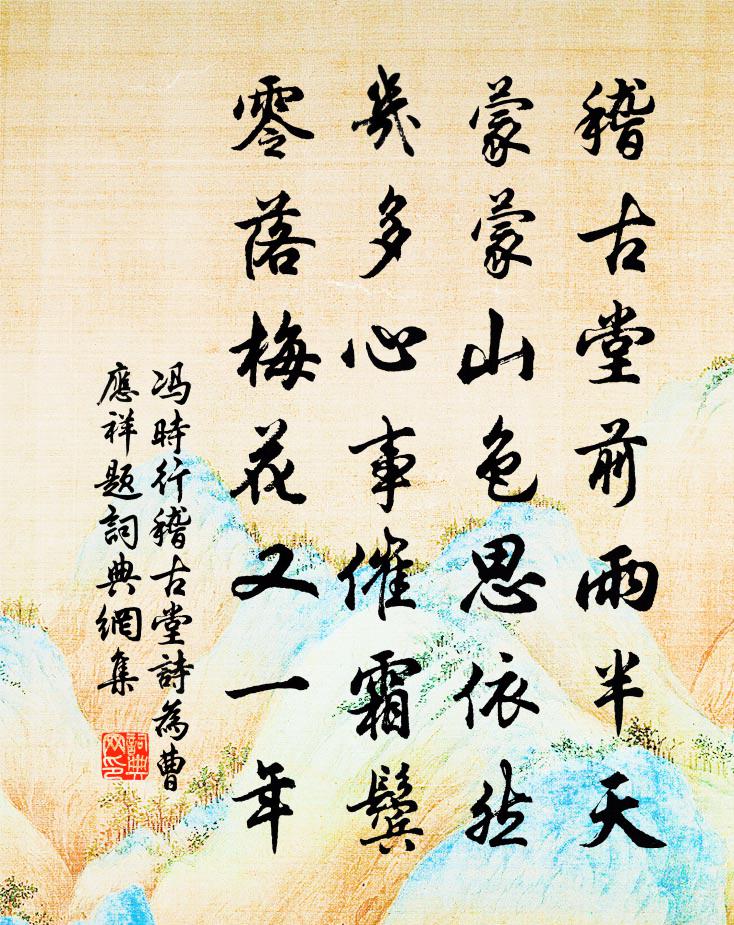 稽古堂前雨半天
蒙蒙山色思依然
幾多心事催霜鬢
零落梅花又一年
馮時行稽古堂詩為曹
應祥題詞典網集
詞典
网印